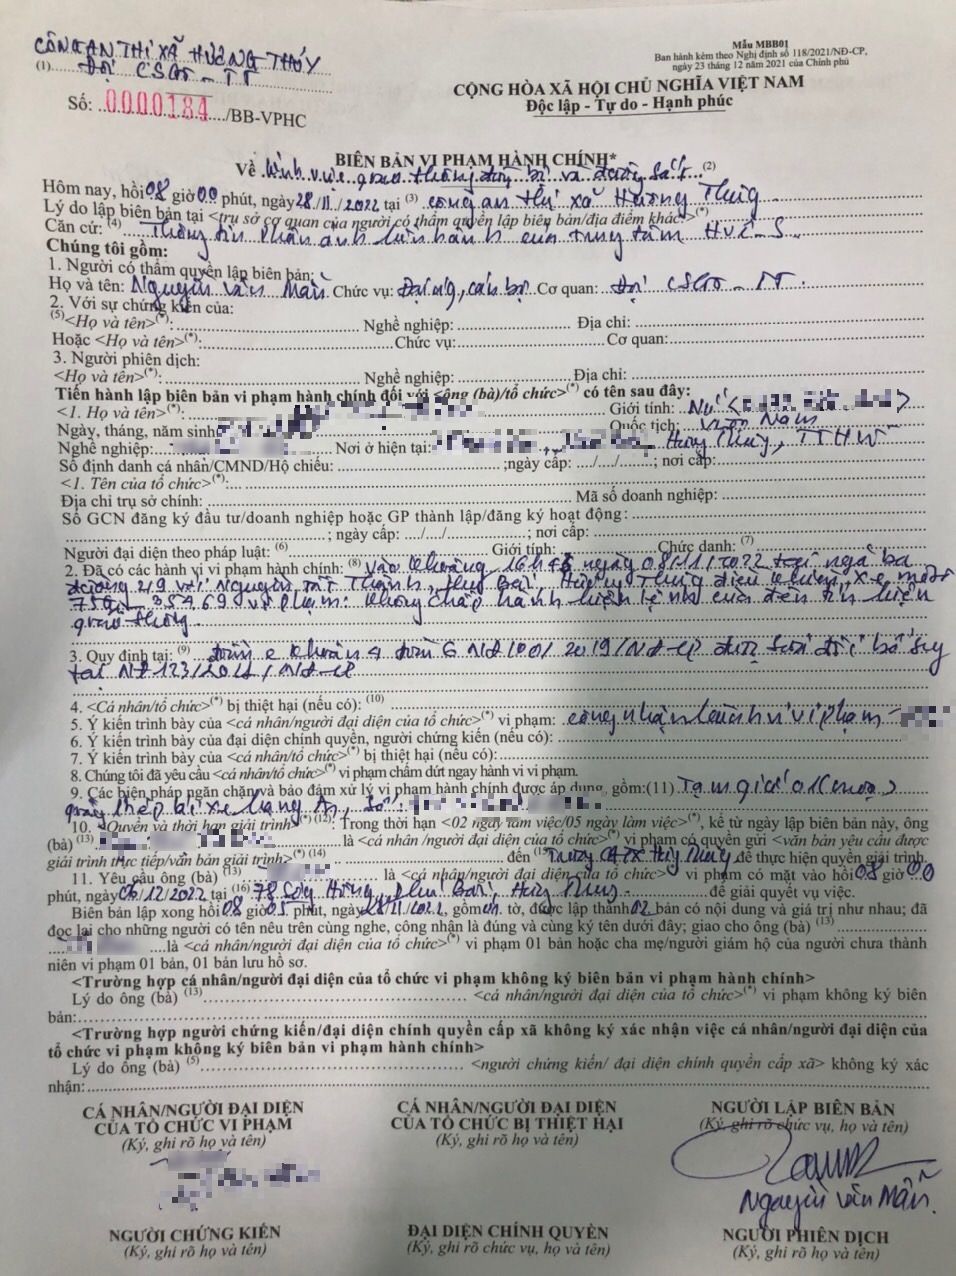 CÔNG AN THỊ XÃ HƯƠNG THỦY
(1) ĐỘI CSGT - TT
Số: 0000184/BB-VPHC
Mẫu MBB01
Ban hành kèm theo Nghị định số 118/2021/NĐ-CP,
ngày 23 tháng 12 năm 2021 của Chính phủ
CỘNG HÒA XÃ HỘI CHỦ NGHĨA VIỆT NAM
Độc lập - Tự do - Hạnh phúc
BIÊN BẢN VI PHẠM HÀNH CHÍNH*
Về lĩnh vực giao thông đường bộ và đường sắt (2)
Hôm nay, hồi 08 giờ 00 phút, ngày 28/11/2022 tại (3) công an thị xã Hương Thủy
Lý do lập biên bản tại <trụ sở cơ quan của người có thẩm quyền lập biên bản/địa điểm khác>(*)
Căn cứ: (4) Thông tin phản ánh hiện hành của trung tâm HueS
Chúng tôi gồm:
1. Người có thẩm quyền lập biên bản:
Họ và tên: Nguyễn Văn Mẫn Chức vụ: cán bộ Cơ quan: Đội CSGT - TT.
2. Với sự chứng kiến của:
(5)<Họ và tên>(*): Nghề nghiệp: Địa chỉ:
Hoặc <Họ và tên>(*): Chức vụ: Cơ quan:
3. Người phiên dịch:
<Họ và tên>(*): Nghề nghiệp: Địa chỉ:
Tiến hành lập biên bản vi phạm hành chính đối với <ông (bà)/tổ chức>(*) có tên sau đây:
<1. Họ và tên>(*): Giới tính: Nữ
Ngày, tháng, năm sinh Quốc tịch: Việt Nam
Nghề nghiệp: Nơi ở hiện tại: Hương Thủy, TTHuế
Số định danh cá nhân/CMND/Hộ chiếu: ;ngày cấp: ..../..../....; nơi cấp:
<1. Tên của tổ chức>(*):
Địa chỉ trụ sở chính: Mã số doanh nghiệp:
Số GCN đăng ký đầu tư/doanh nghiệp hoặc GP thành lập/đăng ký hoạt động:
; ngày cấp: ..../..../....; nơi cấp:
Người đại diện theo pháp luật: (6) Giới tính: Chức danh: (7)
2. Đã có các hành vi vi phạm hành chính: (8) vào khoảng 16h45 ngày 08/11/2022 tại ngã ba
đường 2/9 với Nguyễn Tất Thành, Phú Bài, Hương Thủy điều khiển xe môtô
vi phạm: Không chấp hành hiệu lệnh của đèn tín hiệu
giao thông.
3. Quy định tại: (9) điểm e khoản 4 điều 6 NĐ 100/2019/NĐ-CP được sửa đổi bổ sung
tại NĐ 123/2021/NĐ-CP
4. <Cá nhân/tổ chức>(*) bị thiệt hại (nếu có): (10)
5. Ý kiến trình bày của <cá nhân/người đại diện của tổ chức>(*) vi phạm: công nhận hành vi vi phạm
6. Ý kiến trình bày của đại diện chính quyền, người chứng kiến (nếu có):
7. Ý kiến trình bày của <cá nhân/tổ chức>(*) bị thiệt hại (nếu có):
8. Chúng tôi đã yêu cầu <cá nhân/tổ chức>(*) vi phạm chấm dứt ngay hành vi vi phạm.
9. Các biện pháp ngăn chặn và bảo đảm xử lý vi phạm hành chính được áp dụng, gồm:(11) Tạm giữ 01
giấy phép lái xe hạng A1, số:
10. <Quyền và thời hạn giải trình>(*) (12): Trong thời hạn <02 ngày làm việc/05 ngày làm việc>(*), kể từ ngày lập biên bản này, ông
(bà) (13) là <cá nhân/người đại diện của tổ chức>(*) vi phạm có quyền gửi <văn bản yêu cầu được
giải trình trực tiếp/văn bản giải trình>(*) (14) đến (15) Trưởng CATX Hg Thủy để thực hiện quyền giải trình.
11. Yêu cầu ông (bà) (13) là <cá nhân/người đại diện của tổ chức>(*) vi phạm có mặt vào hồi 08 giờ 00
phút, ngày 06/12/2022 tại (16) 78 Sóng Hồng, Phú Bài, Hương Thủy để giải quyết vụ việc.
Biên bản lập xong hồi 08 giờ 05 phút, ngày 28/11/2022, gồm 01 tờ, được lập thành 02 bản có nội dung và giá trị như nhau; đã
đọc lại cho những người có tên nêu trên cùng nghe, công nhận là đúng và cùng ký tên dưới đây; giao cho ông (bà) (13)
là <cá nhân/người đại diện của tổ chức>(*) vi phạm 01 bản hoặc cha mẹ/người giám hộ của người chưa thành
niên vi phạm 01 bản, 01 bản lưu hồ sơ.
<Trường hợp cá nhân/người đại diện của tổ chức vi phạm không ký biên bản vi phạm hành chính>
Lý do ông (bà) (13) <cá nhân/người đại diện của tổ chức>(*) vi phạm không ký biên
bản:
<Trường hợp người chứng kiến/đại diện chính quyền cấp xã không ký xác nhận việc cá nhân/người đại diện của
tổ chức vi phạm không ký biên bản vi phạm hành chính>
Lý do ông (bà) (5) <người chứng kiến/ đại diện chính quyền cấp xã> không ký xác
nhận:
CÁ NHÂN/NGƯỜI ĐẠI DIỆN CỦA TỔ CHỨC VI PHẠM
(Ký, ghi rõ họ và tên)
CÁ NHÂN/NGƯỜI ĐẠI DIỆN CỦA TỔ CHỨC BỊ THIỆT HẠI
(Ký, ghi rõ họ và tên)
NGƯỜI LẬP BIÊN BẢN
(Ký, ghi rõ chức vụ, họ và tên)
Nguyễn Văn Mẫn
NGƯỜI CHỨNG KIẾN
(Ký, ghi rõ họ và tên)
ĐẠI DIỆN CHÍNH QUYỀN
(Ký, ghi rõ chức vụ, họ và tên)
NGƯỜI PHIÊN DỊCH
(Ký, ghi rõ họ và tên)